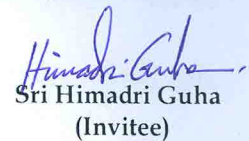 Himadri Guha.
Sri Himadri Guha
(Invitee)